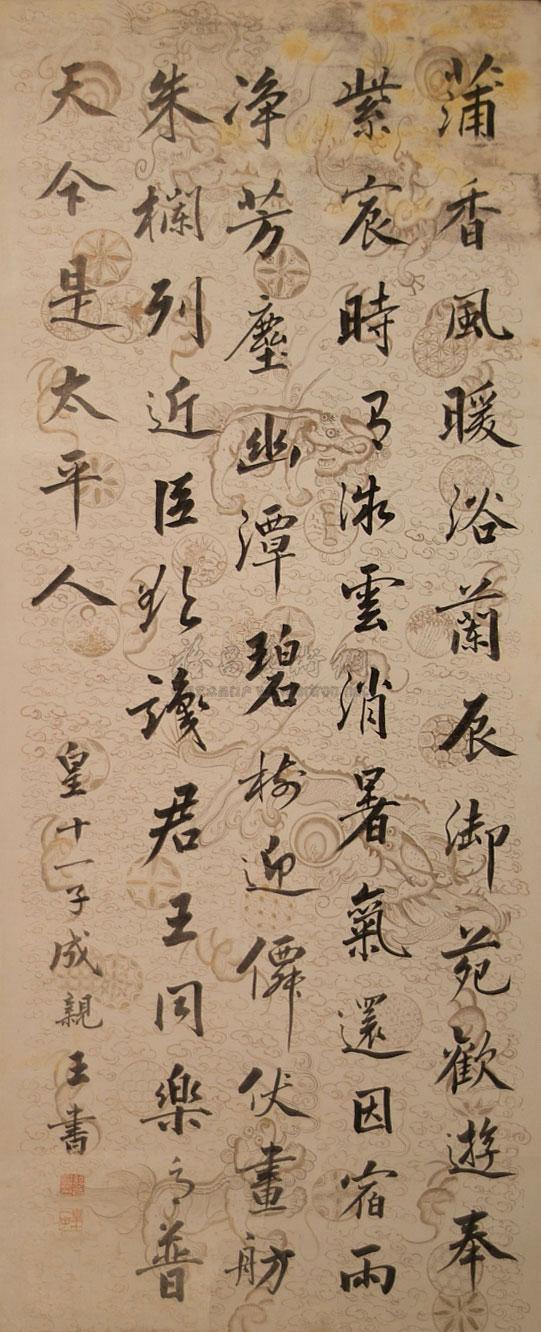 蒲香風暖浴蘭辰御苑歡遊奉
紫宸時有微雲消暑氣還因宿雨
净芳塵幽潭碧樹迎僊仗畫舫
朱欄列近臣欣讌君王同樂普
天今是太平人
皇十一子成親王書